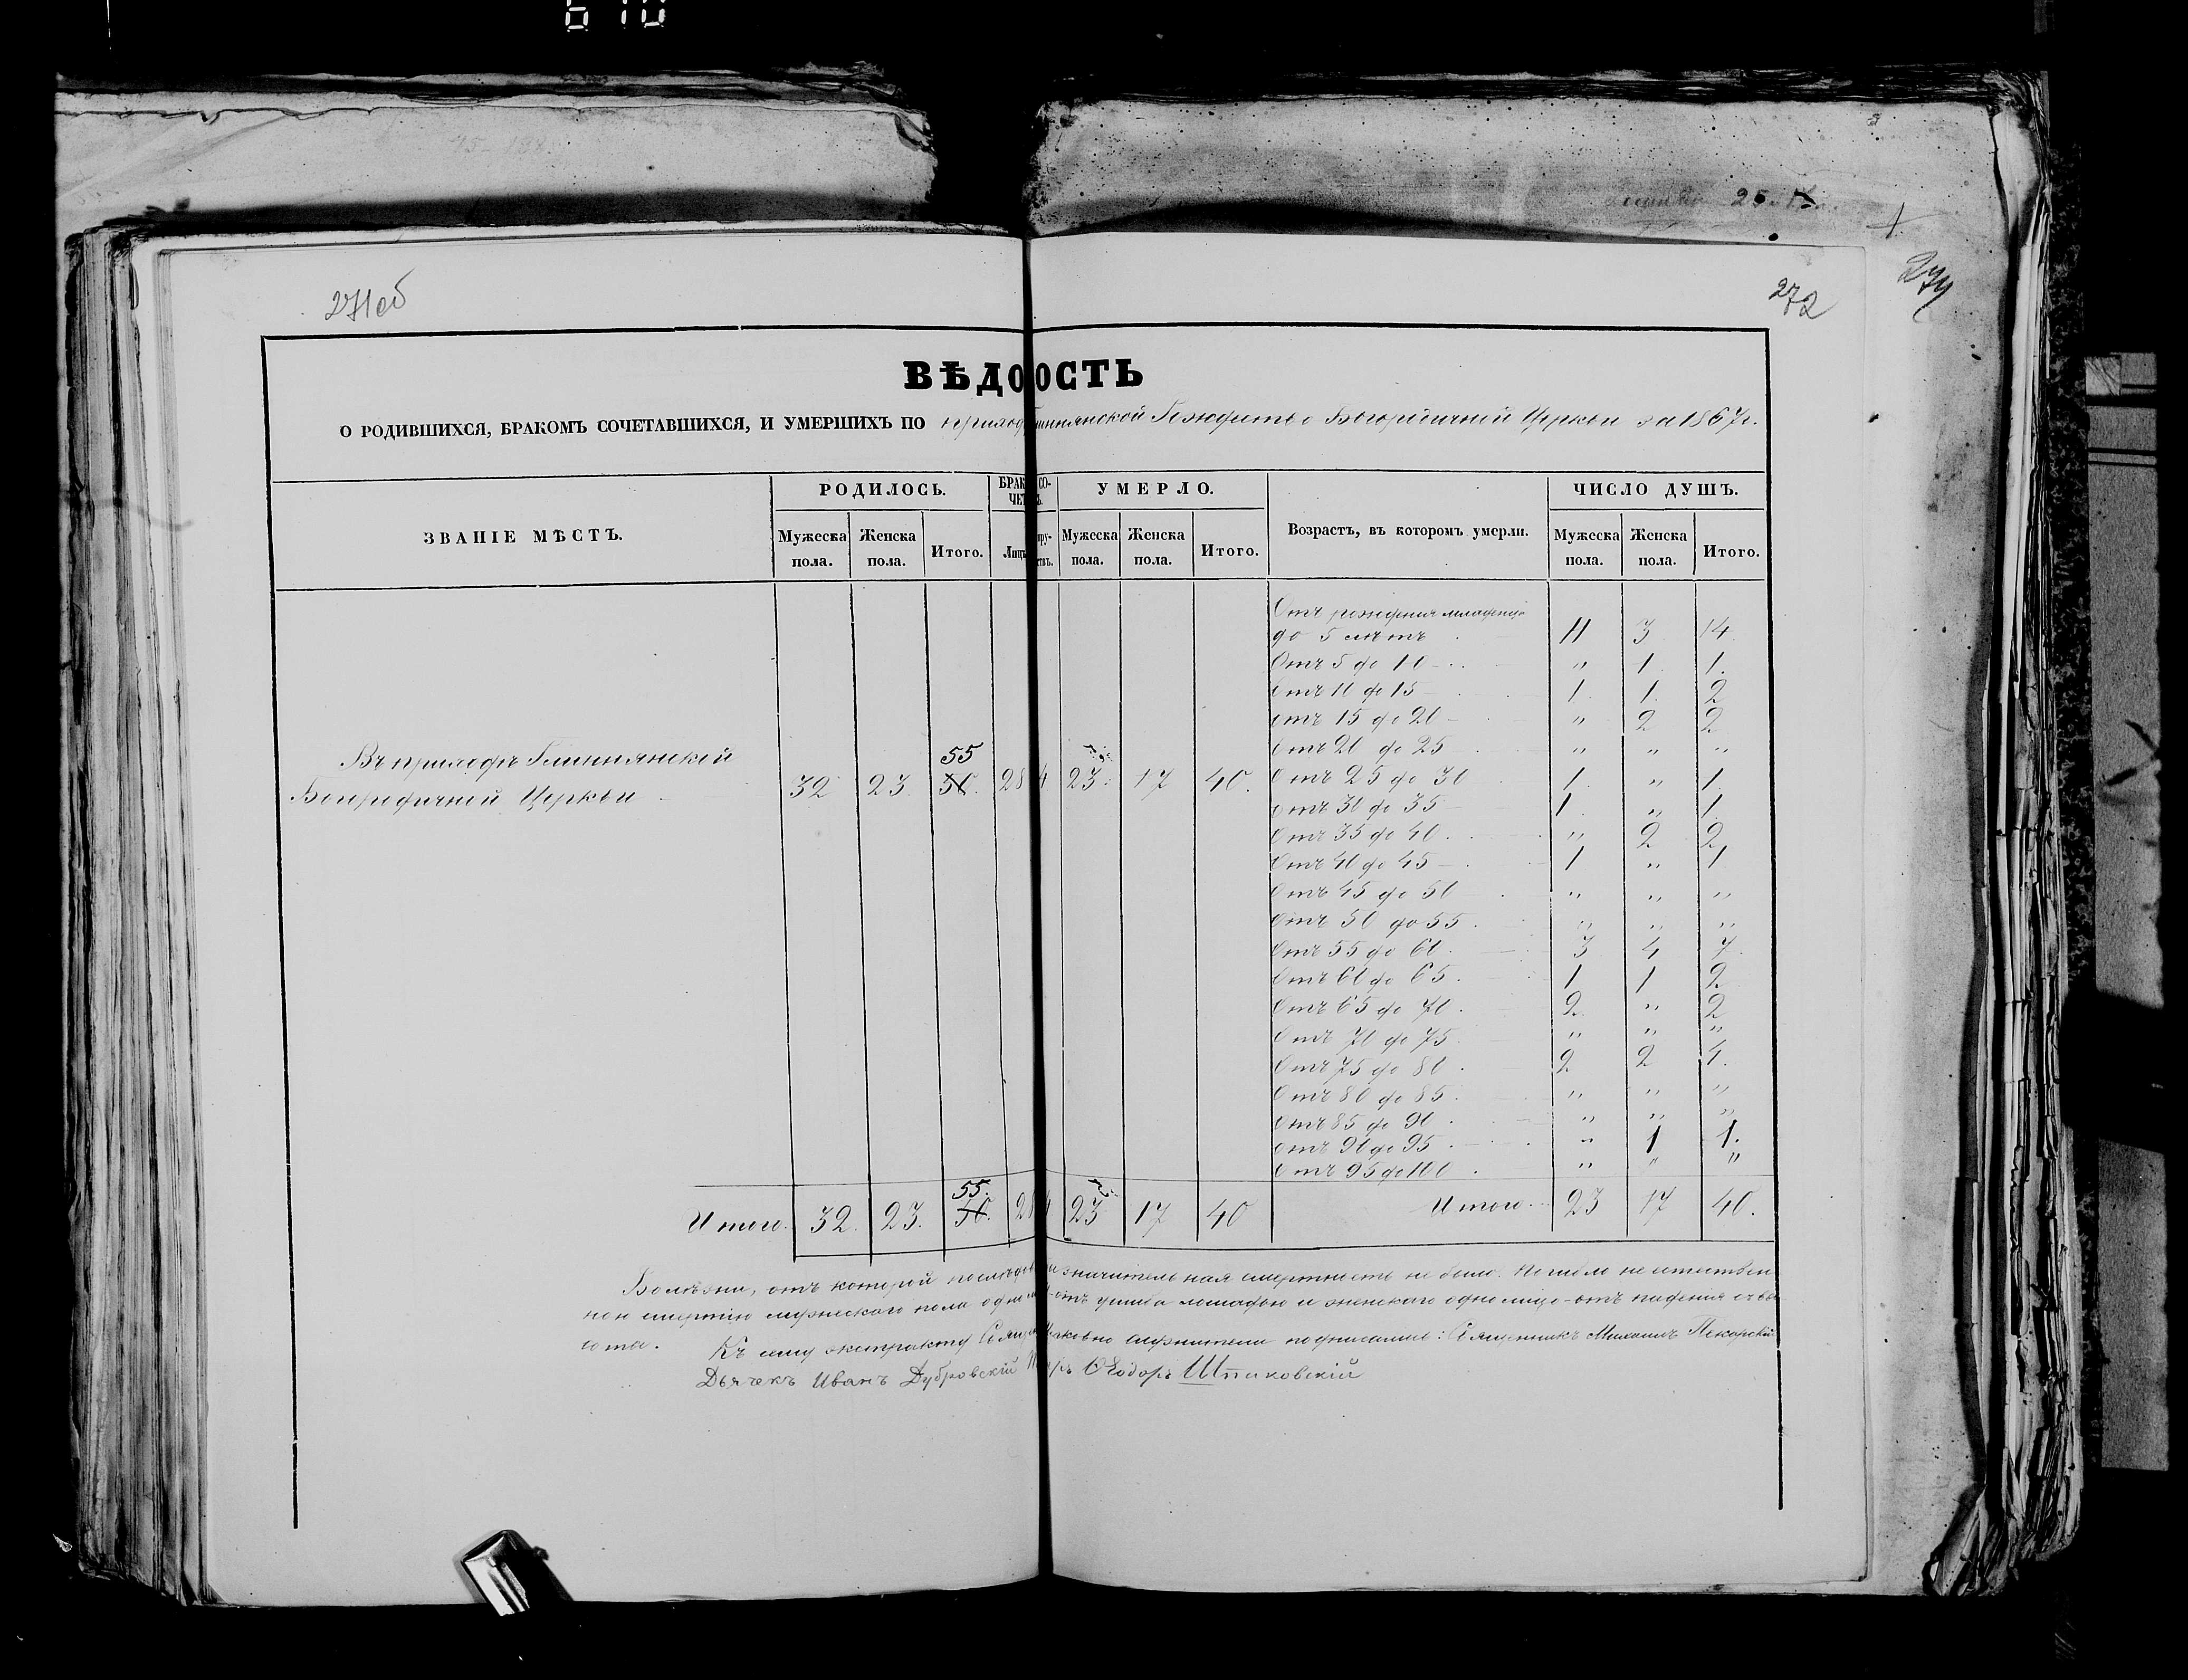 271об
272
274
ВѢДО ОСТЬ
О РОДИВШИХСЯ, БРАКОМЪ СОЧЕТАВШИХСЯ, И УМЕРШИХЪ ПО приход Глиннянской Рождество Богородичной Церкви за 1867 г.
ЗВАНІЕ МѢСТЪ. РОДИЛОСЬ. БРАК СО- ЧЕТ Ъ. УМЕРЛО. Возрастъ, въ которомъ умерли. ЧИСЛО ДУШЪ.
Мужеска пола. Женска пола. Итого. Лицъ пру- ствъ. Мужеска пола. Женска пола. Итого. Мужеска пола. Женска пола. Итого.
Отъ рожденія младенца
до 5 лѣтъ 11 3 14
Отъ 5 до 10 „ 1 1.
Отъ 10 до 15 1. 1. 2
отъ 15 до 20 „ 2 2
Отъ 20 до 25 „ „ „
Въ приходѣ Глиннянской
Богородичной Церкви 32 23. 55 50. 28 4 23. 17 40.
Отъ 25 до 30 1. „ 1.
отъ 30 до 35 1. „ 1.
Отъ 35 до 40. „ 2 2
Отъ 40 до 45 1 „ 1
Отъ 45 до 50 „ „ „
Отъ 50 до 55. „ „ „
Отъ 55 до 60. 3 4 7.
Отъ 60 до 65. 1 1 2.
Отъ 65 до 70. 2. „ 2
Отъ 70 до 75 „ „ „
Отъ 75 до 80. 2 2 4.
Отъ 80 до 85. „ „ „
Отъ 85 до 90. „ „ „
отъ 90 до 95. „ 1 1.
Отъ 95 до 100. „ „ „
Итого. 32. 23. 55. 50. 28 4 23 17 40 Итого. 23 17 40.
Болѣзни, отъ которой послѣдов значительная смертность не было. Погибло неестествен
ною смертію мужескаго пола одно отъ ушиба лошадью и женскаго одно лице - отъ паденія съ вы
соты.
Къ сему экстракту Свящ Церковно служители подписались: Священникъ Михаилъ Пекарскій
Дьячекъ Иванъ Дубровскій Ѳеодоръ Шпаковскій